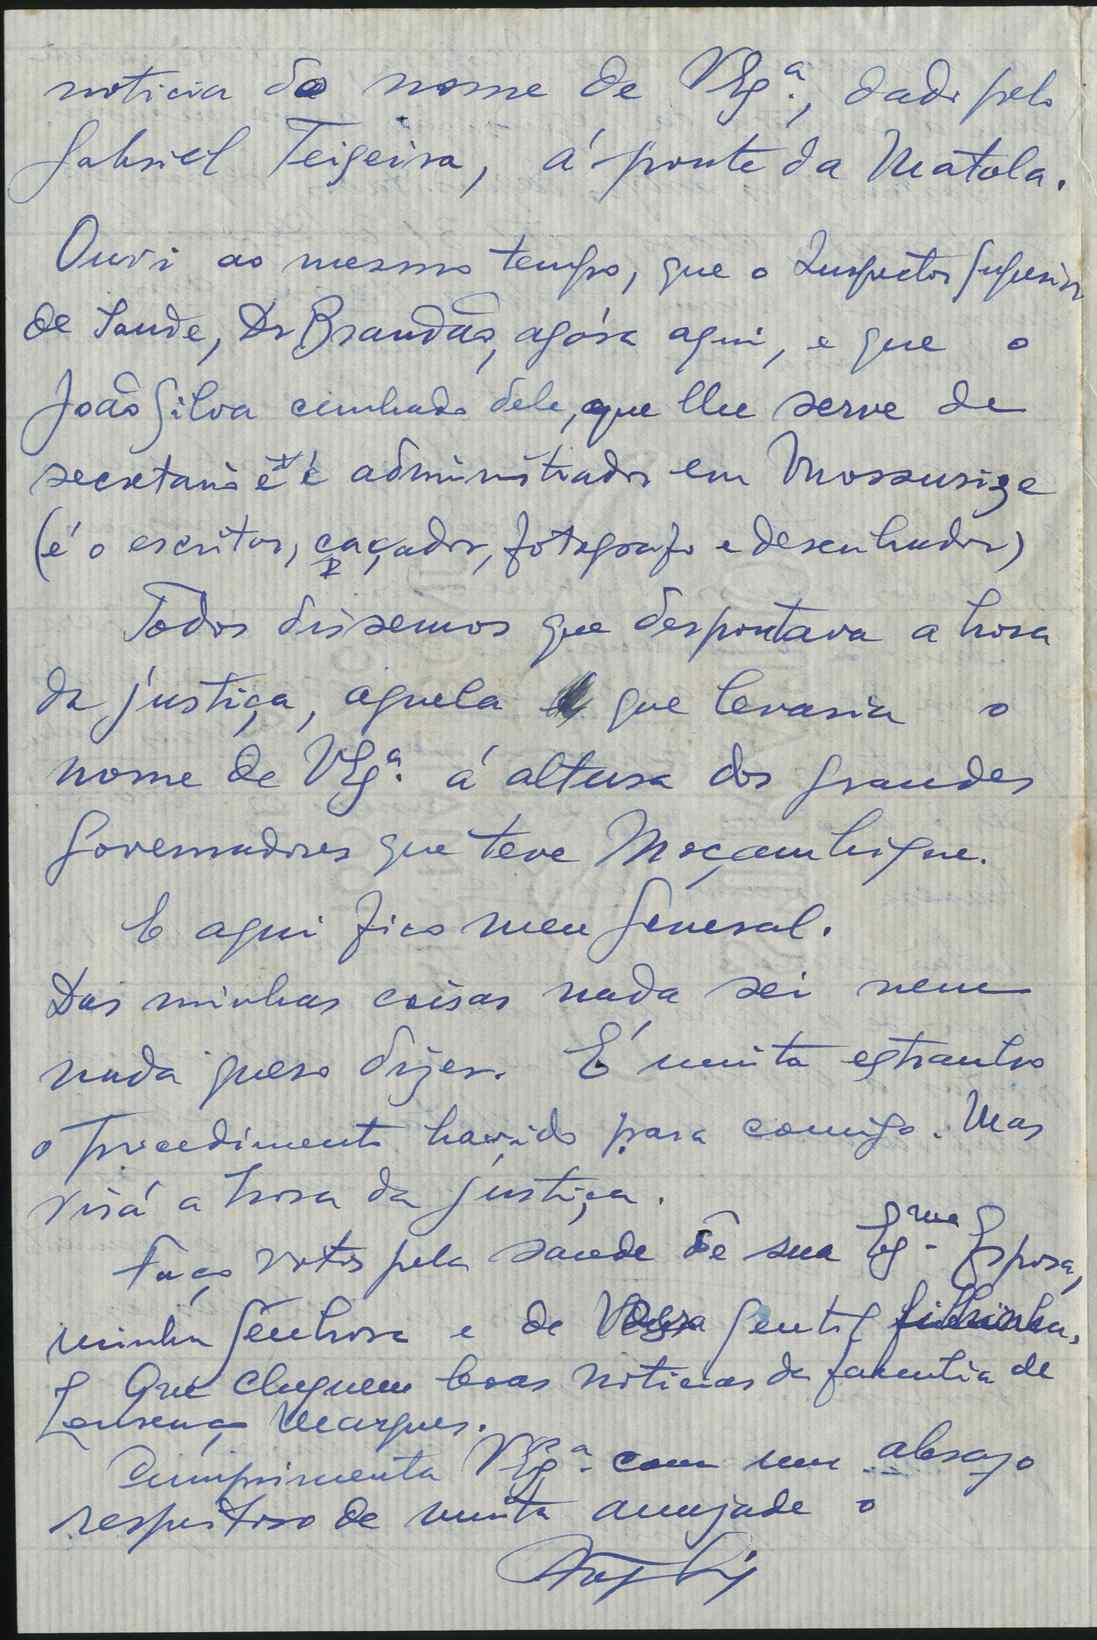 noticia do nome de VExª., dado pelo
Gabriel Teixeira, á ponte da Matola.
Ouvi ao mesmo tempo, que o Inspector Superior
de Saude, Dr Brandão, agóra aqui, e que o
João Silva cunhado dele, que lhe serve de
secretario e é administrador em Mossurize
(é o escritor, caçador, fotografo e desenhador)
Todos dissemos que despontava a hora
da justiça, aquela que levaria o
nome de VExª. á altura dos grandes
Governadores que teve Moçambique.
E aqui fico meu General.
Das minhas coisas nada sei nem
nada quero dizer. É muito extranho
o procedimento havido para comigo. Mas
virá a hora da justiça.
Faço votos pela saude de sua Exma. Esposa,
minha Senhora e de Vossa gentil filhinha.
E Que cheguem boas noticias da familia de
Lourenço Marques.
Cumprimenta VExª. com um abraço
respeitoso de muita amizade o